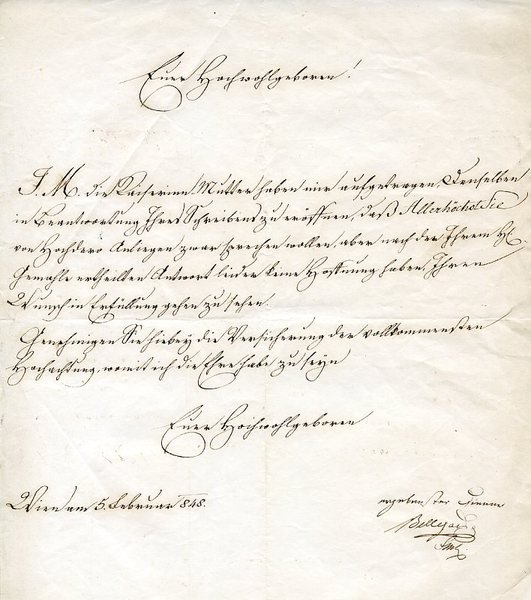 Euer Hochwohlgeboren!
I. M. die Kaiserinn Mutter haben mir aufgetragen, Denselben
in Beantwortung Ihres Schreibens zu eröffnen, daß Allerhöchst Sie
von Hochdero Anliegen zwar sprechen wollen, aber nach der Ihrem H.
Gemahle ertheilten Antwort leider keine Hoffnung haben, Ihren
Wunsch in Erfüllung gehen zu sehen.
Genehmigen Sie hiebey die Versicherung der vollkommensten
Hochachtung, womit ich die Ehre habe zu seyn
Euer Hochwohlgeboren
Wien am 5. Februar 848.
ergebenster Diener